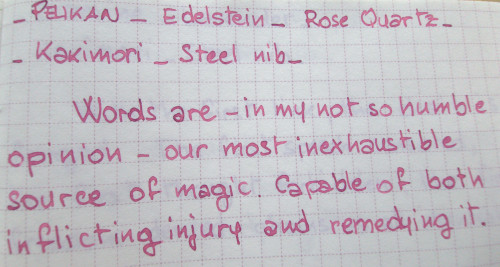 - PELIKAN - Edelstein - Rose Quartz -
- Kakimori - Steel nib -
Words are - in my not so humble
opinion - our most inexhaustible
source of magic. Capable of both
inflicting injury and remedying it.